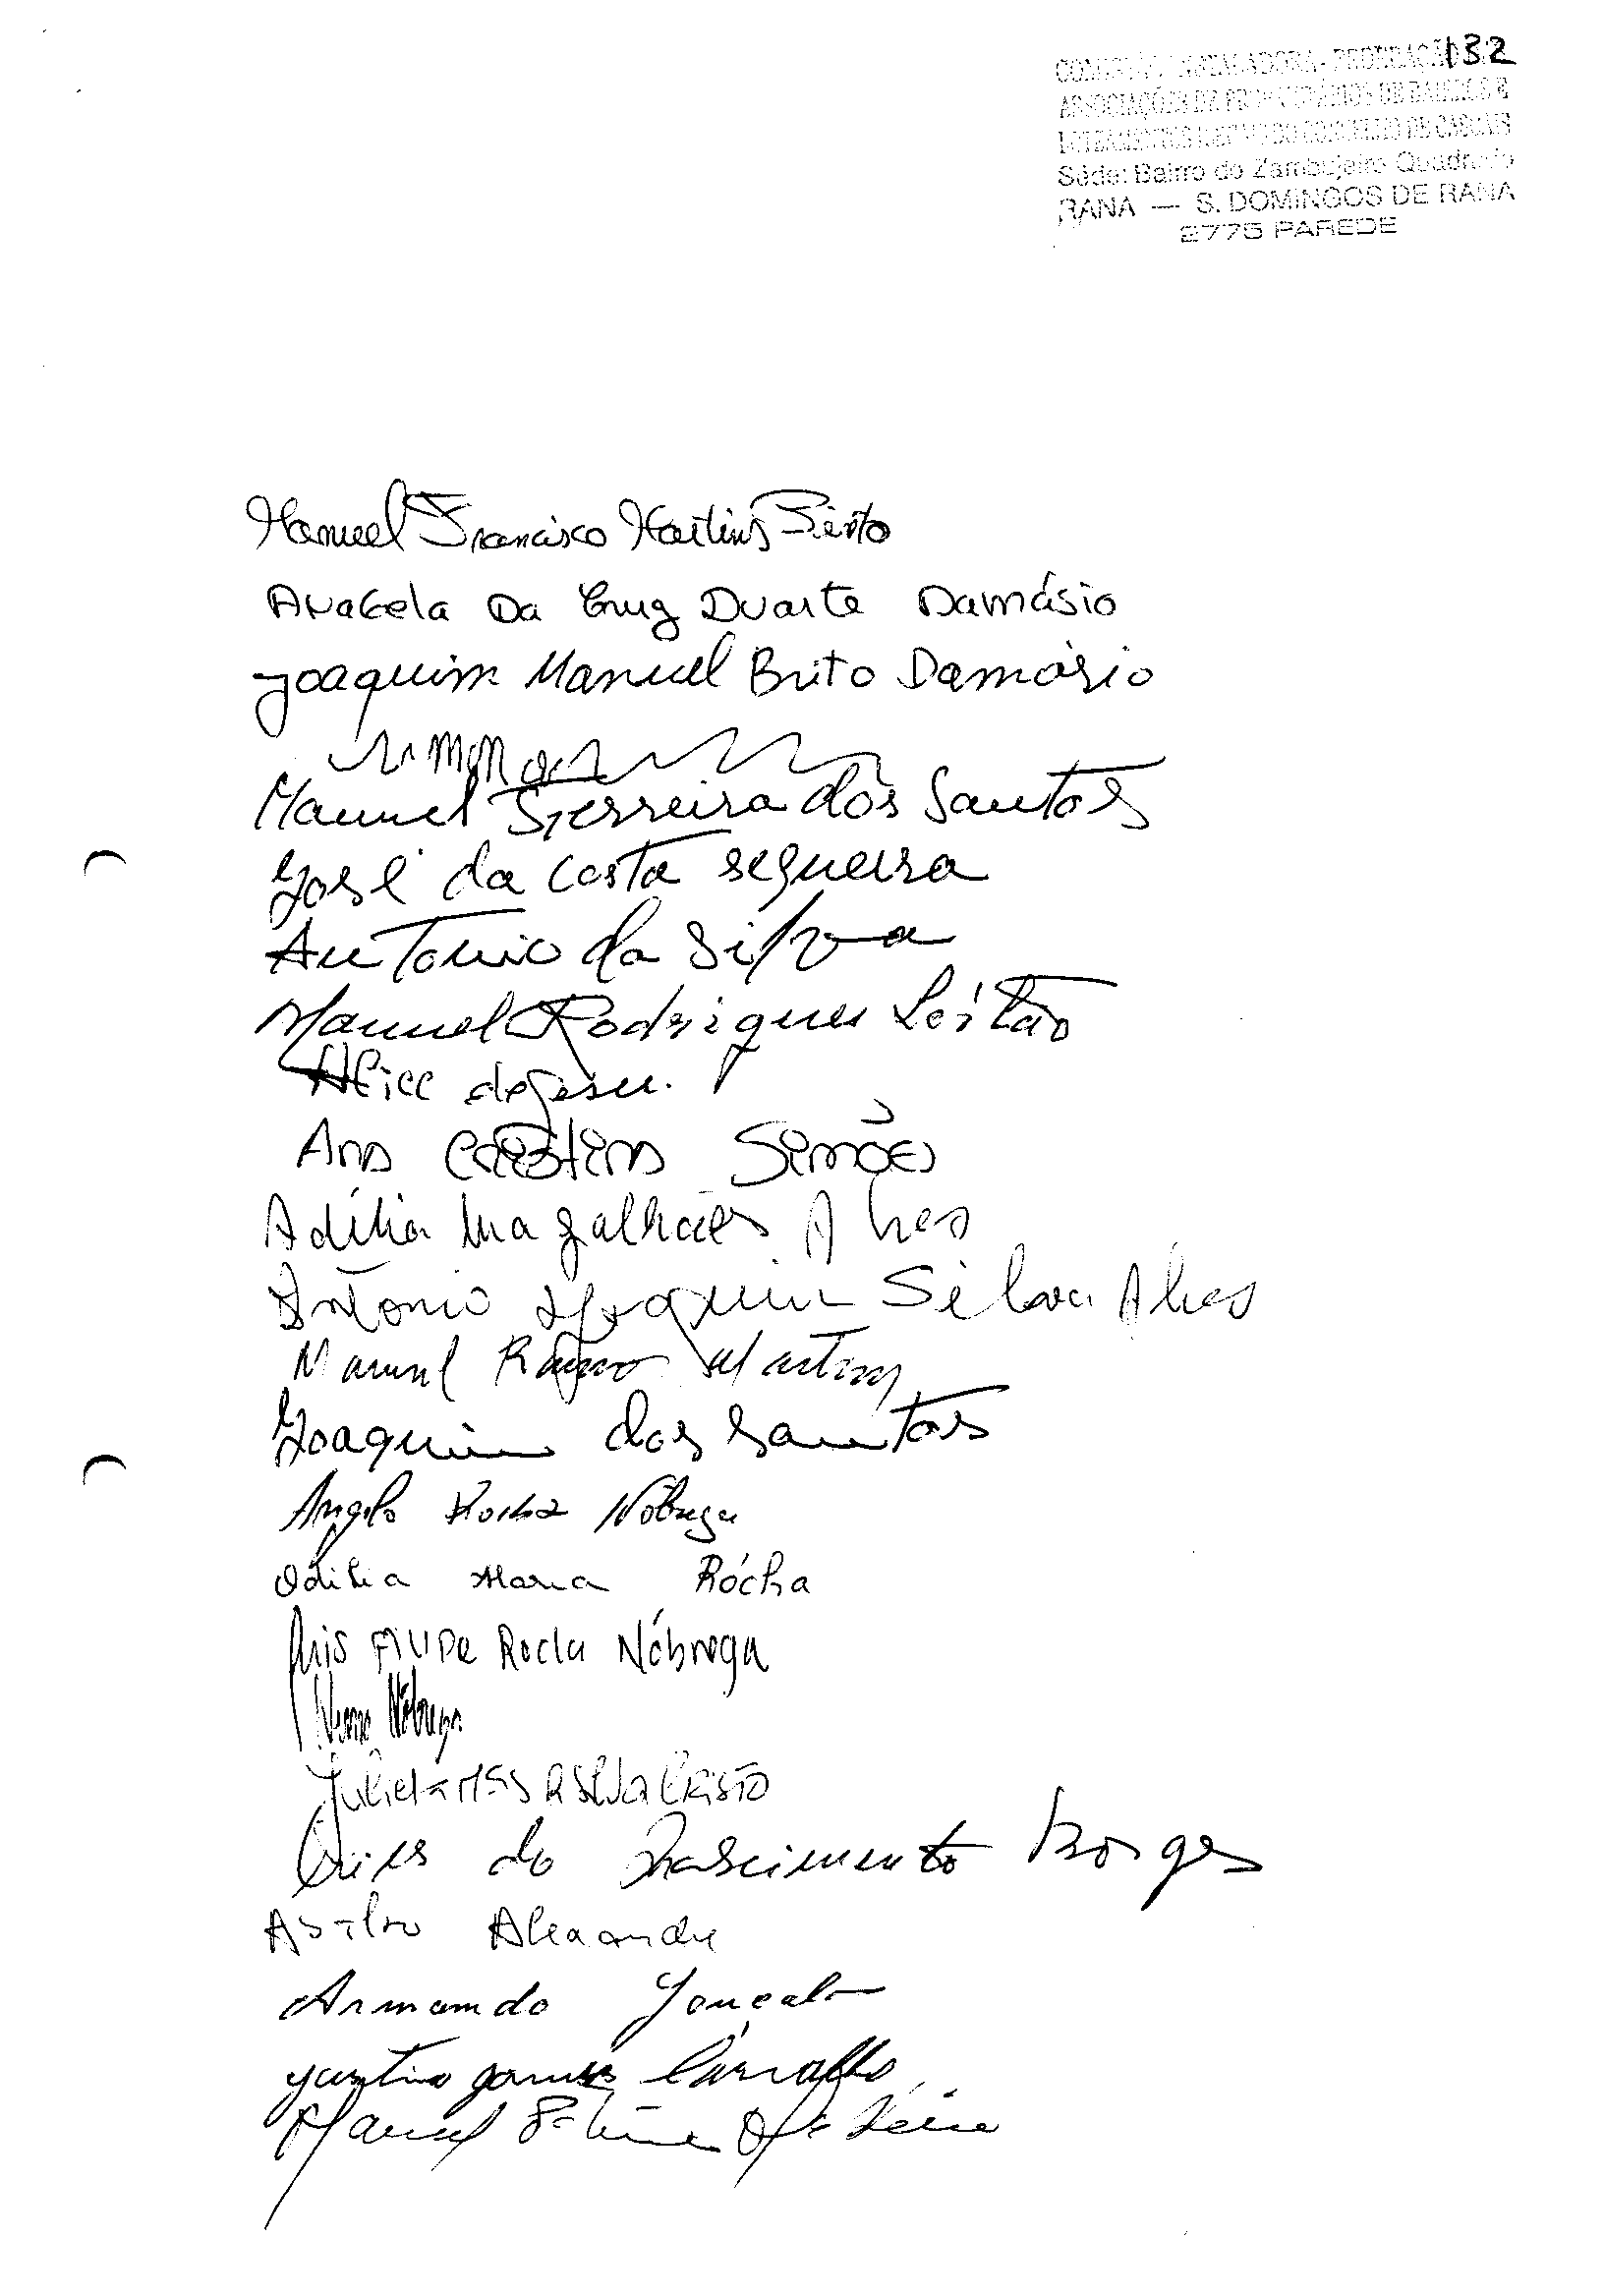 132
ASSOCIAÇÕES DE PROPRIETÁRIOS DE BAIRROS E
CONCELHO DE CASCAIS
Séde: Bairro do Zambujeiro Quadrado
RANA — S. DOMINGOS DE RANA
2775 PAREDE
Manuel Francisco Martins Pinto
Anabela Da Cruz Duarte Damásio
Joaquim Manuel Brito Damásio
Manuel Ferreira dos Santos
José da Costa sequeira
Antonio da Silva
Manuel Rodrigues Leitão
Alice de Jesus.
Ana Cristina Simões
Adília Magalhães Alves
António Joaquim Silva Alves
Manuel Martins
Joaquim dos Santos
Angelo Rocha Nóbrega
Odília Maria Rócha
Luis Filipe Rocha Nóbrega
Nuno Nóbrega
Julieta Silva Cristo
do Nascimento Borges
Alexandre
Armando Gonçalves
Gomes Carvalho
Manuel